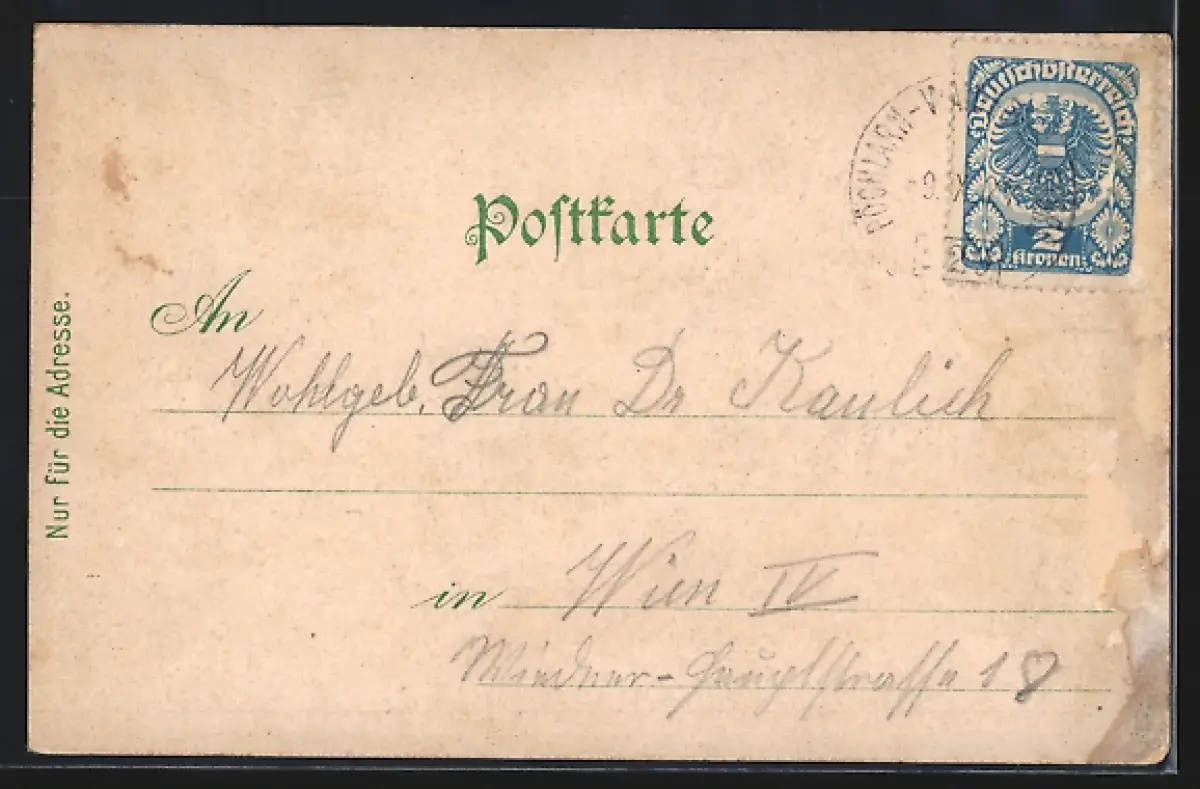 Deutschösterreich
2
Kronen
PÖCHLARN-
Postkarte
An
Wohlgeb. Frau Dr Kaulich
in Wien IV
Wiedner-Hauptstrasse 18
Nur für die Adresse.